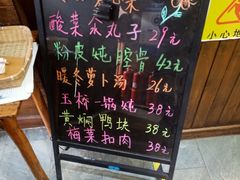 酸菜汆丸子 29元
粉皮炖脖骨 42元
暖冬萝卜汤 26元
玉桥一锅炖 38元
黄焖鸭块 38元
梅菜扣肉 38元
小心地